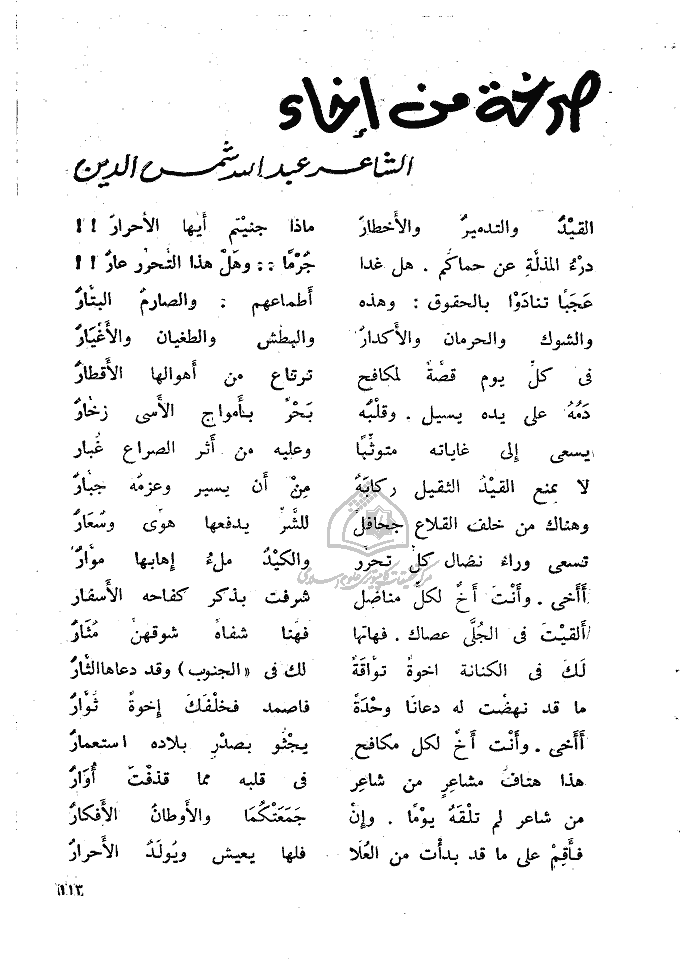 صرخة من إخاء
الشاعر عبد الله شمس الدين
القيْدُ والتدميرُ والأخطارُ ماذا جنيْتم أيها الأحرارُ !!
درْءُ المذلّةِ عن حماكُم . هل غدا جُرْمًا :: وهَلْ هذا التحرّر عارُ !!
عَجَبًا تنادَوْا بالحقوق : وهذه أطماعهم : والصارمُ البتّارُ
والشوك والحرمان والأكدارُ والبطش والطغيان والأغْيَارُ
فى كلّ يوم قصّةٌ لمكافح ترتاع من أهوالها الأقطارُ
دَمُهُ على يده يسيل . وقلْبُه بَحْرٌ بأمواج الأسى زخّارُ
يسعى إلى غاياته متوثّبًا وعليه من أثر الصراع غُبار
لا يمنع القيْدُ الثقيل ركابَهُ مِنْ أن يسير وعزمُه جبّارُ
وهناك من خلف القلاع جحافلٌ للشّرّ يدفعها هوًى وسُعَارُ
تسعى وراءَ نضال كلّ تحرّر والكيْدُ ملءُ إهابها موّارُ
أأخى . وأنْتَ أخٌ لكلّ مناضل شرفت بذكر كفاحه الأسفار
ألقيْتَ فى الجُلَّى عصاك . فهاتها فهُنا شفاهٌ شوقهنّ مُثَارُ
لَكَ فى الكنانة اخوةٌ توّاقةٌ لك فى «الجنوب» وقد دعاها الثّارُ
ما قد نهضْت له دعانا وحْدَةً فاصمد فخلْفَكَ إخوةٌ ثُوّارُ
أأخى . وأنْتَ أخٌ لكل مكافح يجْثُو بصدْرِ بلاده استعمارُ
هذا هتافُ مشاعرٍ من شاعر فى قلبه مما قذفْتَ أُوَارُ
من شاعر لم تلقَهُ يوْمًا . وإنْ جَمَعَتْكُمَا والأوطانُ الأفكارُ
فأقِمْ على ما قد بدأت من العُلَا فلها يعيش ويُولَدُ الأحرارُ
١١٣